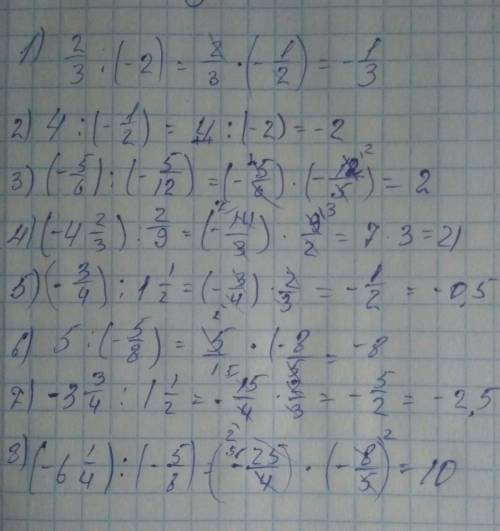 1) 2/3 : (-2) = 2/3 · (-1/2) = -1/3
2) 4 : (-1/2) = 4 : (-2) = -2
3) (-5/6) : (-5/12) = (-5/6) · (-12/5) = 2
4) (-4 2/3) : 2/9 = (-14/3) · 9/2 = 7 · 3 = 21
5) (-3/4) : 1 1/2 = (-3/4) · 2/3 = -1/2 = -0,5
6) 5 : (-5/8) = 5/1 · (-8/5 = -8
7) -3 3/4 : 1 1/2 = -15/4 · /3 = -5/2 = -2,5
8) (-6 1/4) : (-5/8) = (-25/4) · (-8/5) = 10